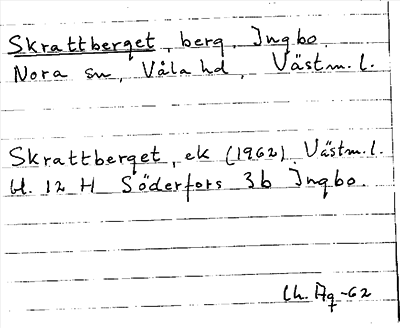 Skrattberget, berg, Ingbo.
Nora sn, Våla hd, Västm. l.
Skrattberget, ek (1962) Västm. l.
bl. 12 H Söderfors 3b Ingbo.
Ch. Ag -62